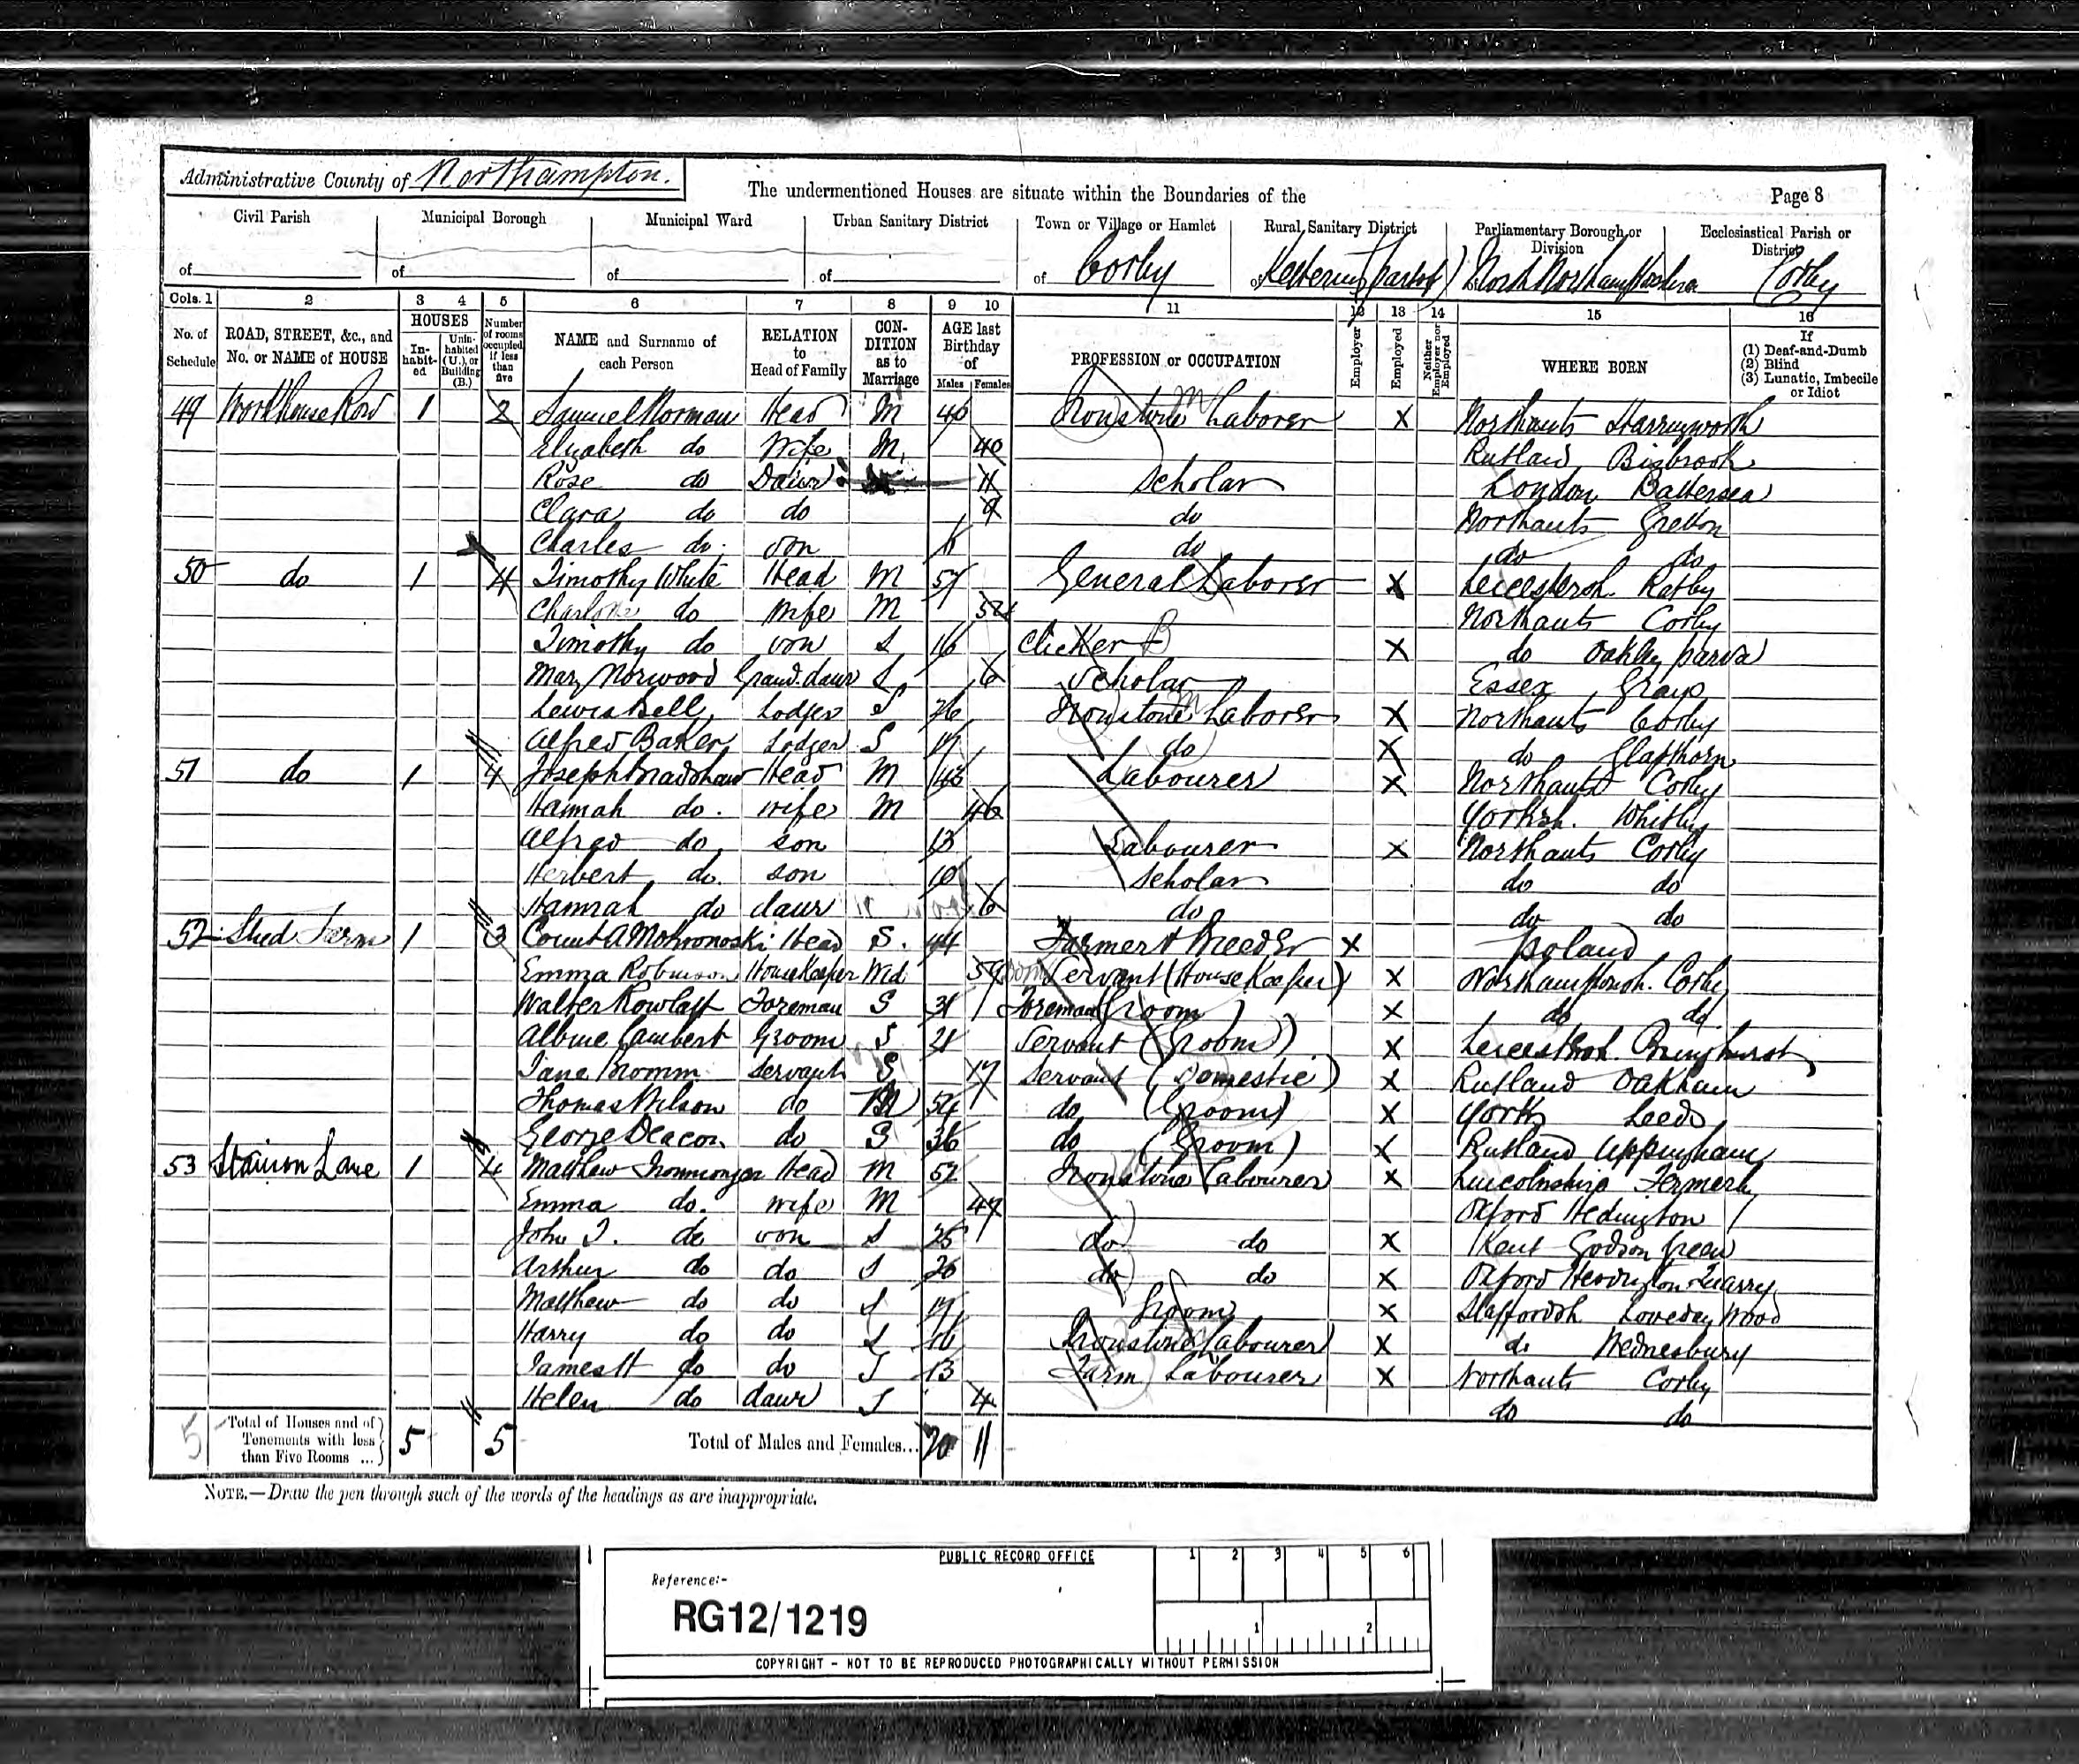 Administrative County of Northampton.
The undermentioned Houses are situate within the Boundaries of the
Page 8
Civil Parish Municipal Borough Municipal Ward Urban Sanitary District Town or Village or Hamlet Rural Sanitary District Parliamentary Borough or Division Ecclesiastical Parish or District
of of of of of Corby of Kettering (part of) North Northamptonshire Corby
Cols. 1 2 3 4 5 6 7 8 9 10 11 12 13 14 15 16
No. of Schedule ROAD, STREET, &c., and No. or NAME of HOUSE HOUSES Inhabited Uninhabited (U.), or Building (B.) Number of rooms occupied if less than five NAME and Surname of each Person RELATION to Head of Family CONDITION as to Marriage AGE last Birthday of Males Females PROFESSION or OCCUPATION Employer Employed Neither Employer nor Employed WHERE BORN If (1) Deaf-and-Dumb (2) Blind (3) Lunatic, Imbecile or Idiot
49 Workhouse Row 1 2 Samuel Norman Head M 40 Ironstone Laborer X Northants Harringworth
Elizabeth do Wife M 40 Rutland Bisbrook
Rose do Daur 11 Scholar London Battersea
Clara do do 9 do Northants Gretton
Charles do. Son 6 do do do
50 do 1 4 Timothy White Head M 57 General Laborer X Leicestersh. Ratby
Charlotte do Wife M 54 Northants Corby
Timothy do Son S 16 Clicker B X do Oakley parva
Mary Norwood Grand.daur S 6 Scholar Essex Grays
Lewis Bell Lodger S 26 Ironstone Laborer X Northants Corby
Alfred Baker Lodger S 17 do X do Glapthorn
51 do 1 4 Joseph Bradshaw Head M 48 Labourer X Northants Corby
Hannah do. wife M 46 Yorksh. Whitby
Alfred do. son 13 Labourer X Northants Corby
Herbert do. son 10 Scholar do do
Hannah do daur 6 do do do
52 Shed Farm 1 3 Count A Mokronoski Head S. 44 Farmer & Breeder X Poland
Emma Robinson HouseKeeper Wid 59 Servant (House Keeper) X Northamptonsh. Corby
Walter Rowlatt Foreman S 31 Foreman (Groom) X do do
Albine Lambert Groom S 21 Servant (Groom) X Leicestersh. Bringhurst
Jane Bromm Servant S 17 Servant (Domestic) X Rutland Oakham
Thomas Wilson do M 54 do (Groom) X York Leeds
George Deacon do S 36 do (Groom) X Rutland Uppingham
53 Stanion Lane 1 4 Matthew Ironmonger Head M 52 Ironstone Labourer X Lincolnshire
Emma do. wife M 47 Oxford Hedington
John T. do son S 25 do do X Kent Godson Green
Arthur do do S 20 do do X Oxford Hedington Quarry
Matthew do do S 17 Groom X Staffordsh Loveday Wood
Harry do do S 16 Ironstone Labourer X do Wednesbury
James H do do S 13 Farm Labourer X Northants Corby
Helen do daur S 4 do do
5 Total of Houses and of Tenements with less than Five Rooms ... 5 5 Total of Males and Females... 20 11
NOTE.—Draw the pen through such of the words of the headings as are inappropriate.
PUBLIC RECORD OFFICE
1 2 3 4 5 6
Reference:-
RG12/1219
1 2
COPYRIGHT - NOT TO BE REPRODUCED PHOTOGRAPHICALLY WITHOUT PERMISSION